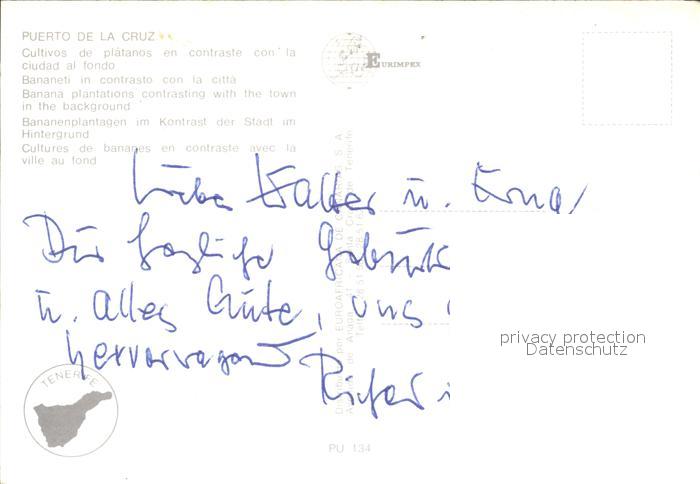 PUERTO DE LA CRUZ
Cultivos de plátanos en contraste con la
ciudad al fondo
Bananeti in contrasto con la città
Banana plantations contrasting with the town
in the background
Bananenplantagen im Kontrast der Stadt im
Hintergrund
Cultures de bananes en contraste avec la
ville au fond
EURIMPEX
Walter u. Erna,
Dir
u. alles Gute, uns
hervorragend
privacy protection
Datenschutz
TENERIFE
PU 134